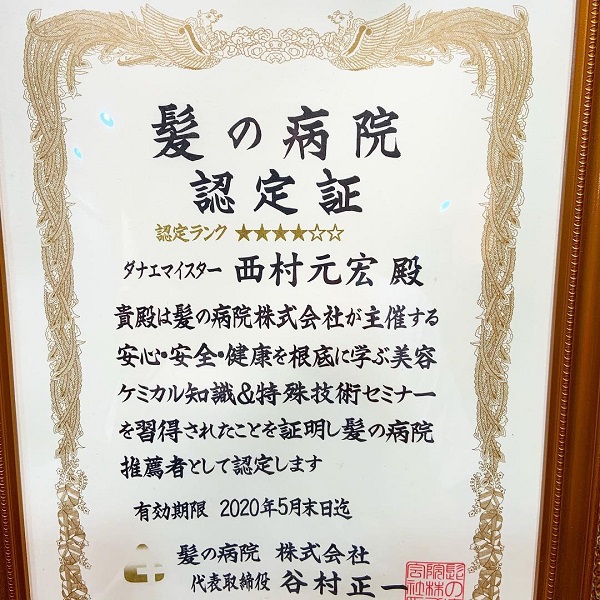 髪の病院
認定証
認定ランク ★★★★☆☆
ダナエマイスター 西村元宏 殿
貴殿は髪の病院株式会社が主催する
安心・安全・健康を根底に学ぶ美容
ケミカル知識&特殊技術セミナー
を習得されたことを証明し髪の病院
推薦者として認定します
有効期限 2020年5月末日迄
髪の病院 株式会社
代表取締役 谷村正一